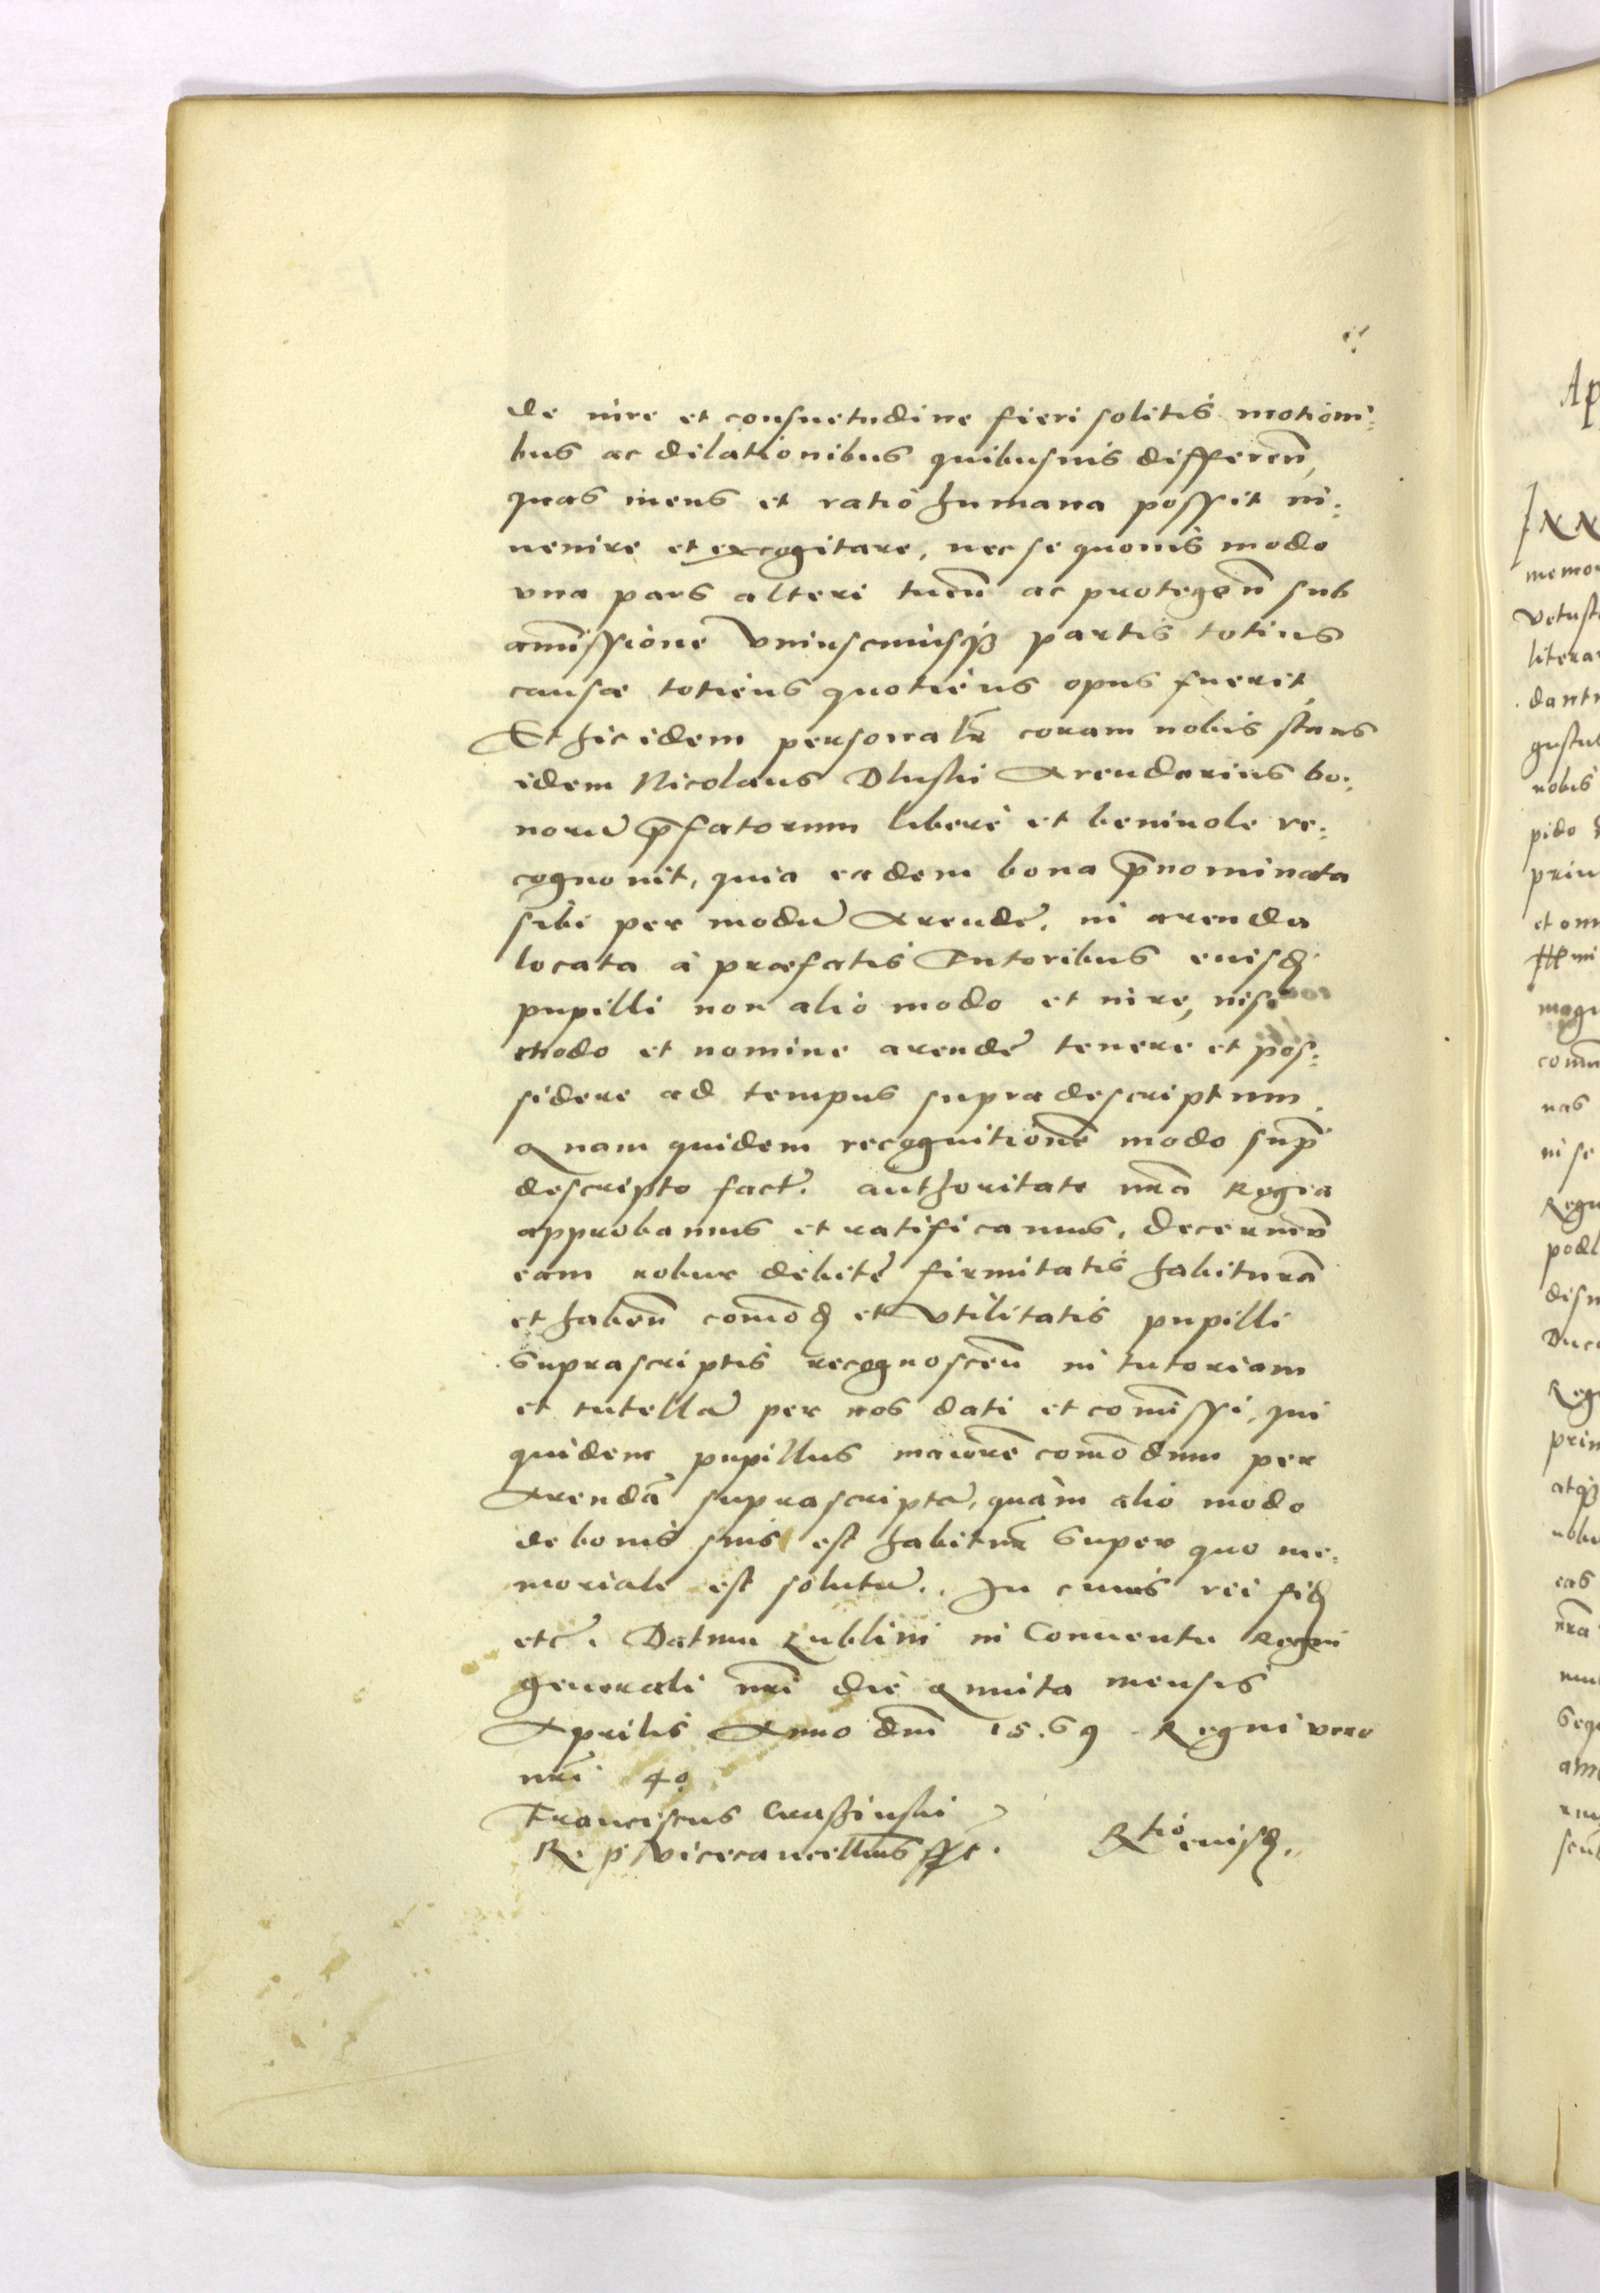 de iure et consuetudine fieri solitis motioni:
bus ac dilationibus quibusuis differen̄,
quas mens et ratio humana possit in:
uenire et excogitare, nec se quouis modo
vna pars alteri tuen̄ ac protegen̄ sub
amīssione vniuscuiusqȝ partis totius
causæ totiens quotiens opus fuerit,
Et hic idem personalr̄ coram nobis stans
idem Nicolaus Dluski Arendarius bo:
norū p̄fatorum libere et beniuole re:
cognouit, quia eadem bona p̄nominata
sibi per modū Arendę. in arenda
locata à præfatis Tutoribus euisdꝫ
pupilli non alio modo et iure, nisi
modo et nomine arendę tenere et pos:
sidere ad tempus supradescriptum.
Quam quidem recognitionē modo sup̄
descripto factā. authoritate nr̄a Regia
approbamus et ratificamus. decernen̄
eam robur debitę firmitatis habiturā
et haben̄ com̄odꝫ et vtilitatis pupilli
suprascriptis recognoscen̄ in tutoriam
et tutellā per nos dati et com̄issi, qui
quidem pupillus maiorē com̄odum per
Arendā suprascriptā, quàm alio modo
de bonis suis est habitur̄ super quo me:
moriale est solutū. In cuius rei fidꝫ
etc̄. Datum Lublini in Conuentu Regni
generali nr̄i die quinta mensis
Aprilis Anno dn̄i 15.69 Regni vero
nr̄i 40
Franciscus Crassinski
R. P. Vicecancellarius sst.
Rtio euisdꝫ.